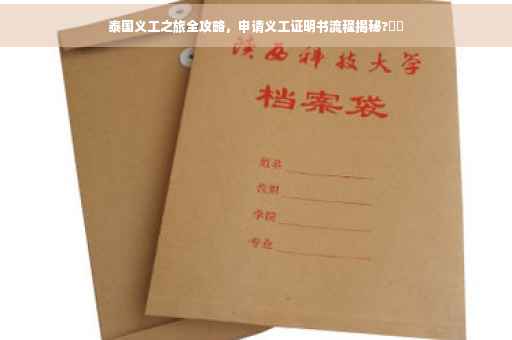 泰国义工之旅全攻略，申请义工证明书流程揭秘?
陕西科技大学
档案袋
姓名
学院
专业